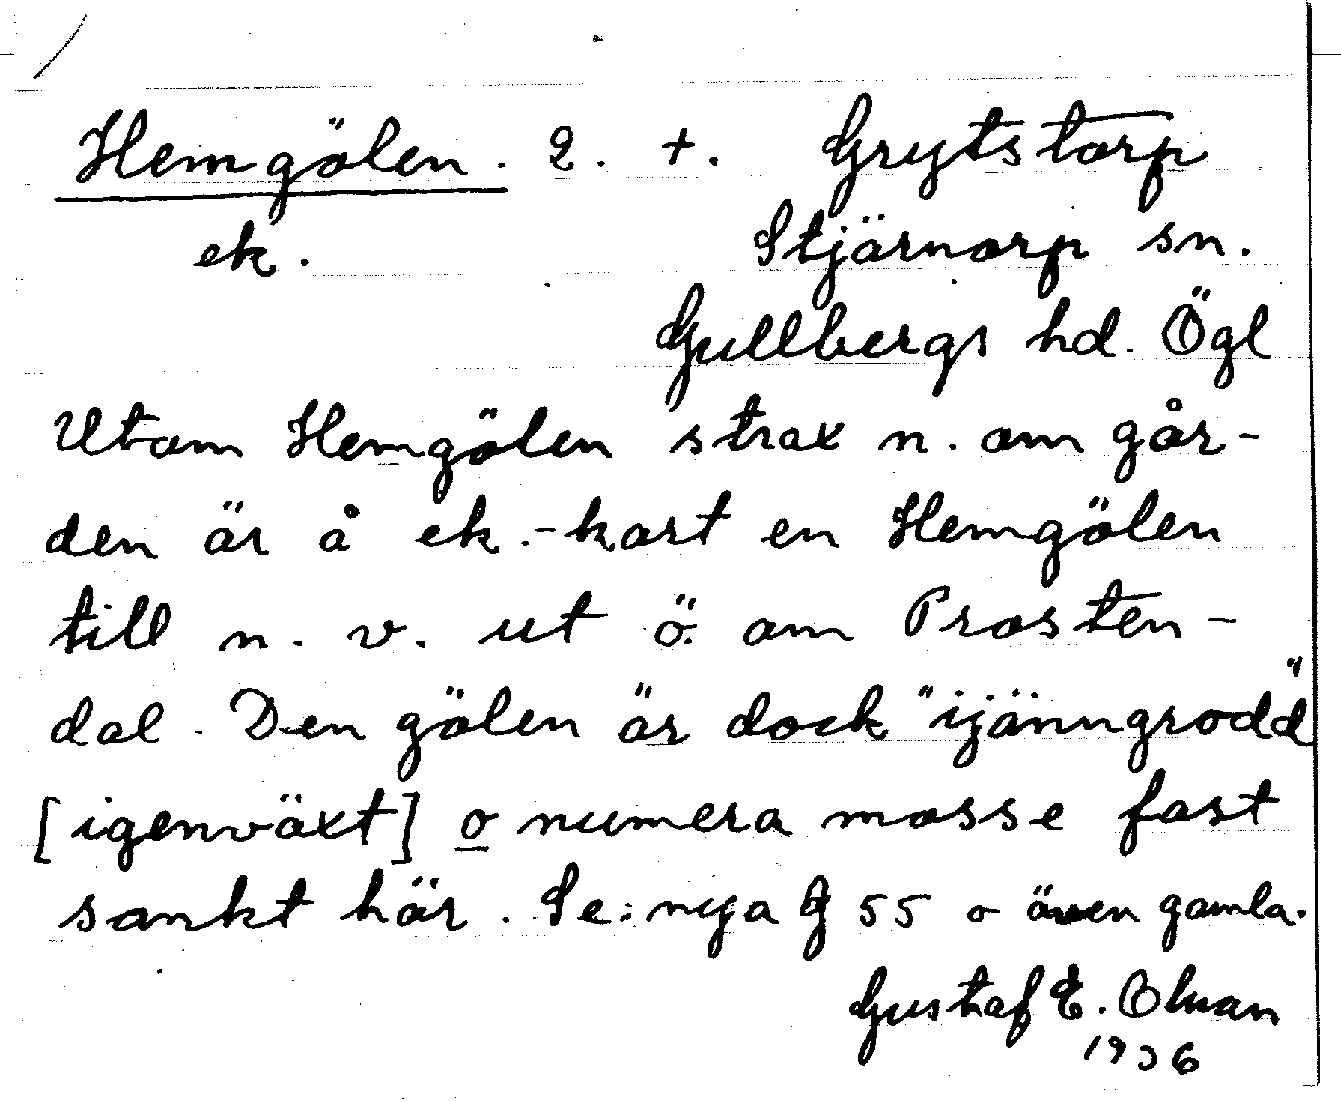 Hemgölen. 2. +. Grytstorp
ek. Stjärnorp sn.
Gullbergs hd. Ögl
Utom Hemgölen strax n. om går-
den är å ek.-kart en Hemgölen
till n. v. ut ö. om Prosten-
dal. Den gölen är dock "ijänngrodd"
[igenväxt] o numera mosse fast
sankt här. Se: nya G 55 o även gamla.
Gustaf E. Olsson
1936